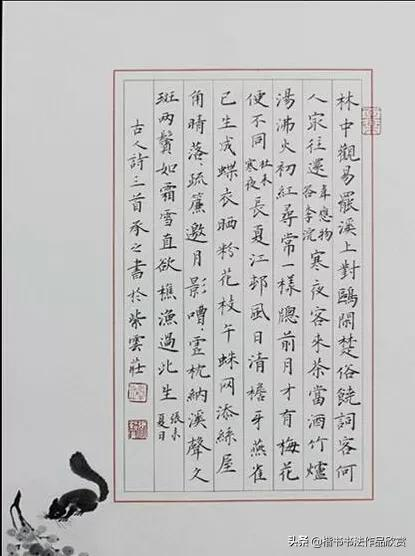 林中觀易罷溪上對鷗閑楚俗饒詞客何
人最往還韋應物答李浣寒夜客來茶當酒竹爐
湯沸火初紅尋常一樣牕前月才有梅花
便不同杜耒寒夜長夏江邨風日清檐牙燕雀
已生成蝶衣晒粉花枝午蛛网添絲屋
角晴落、疏簾邀月影嘈、虛枕納溪聲久
斑兩鬢如霜雪直欲樵漁過此生張耒夏日
古人詩三首承之書於紫雲莊
头条 @楷书书法作品欣赏